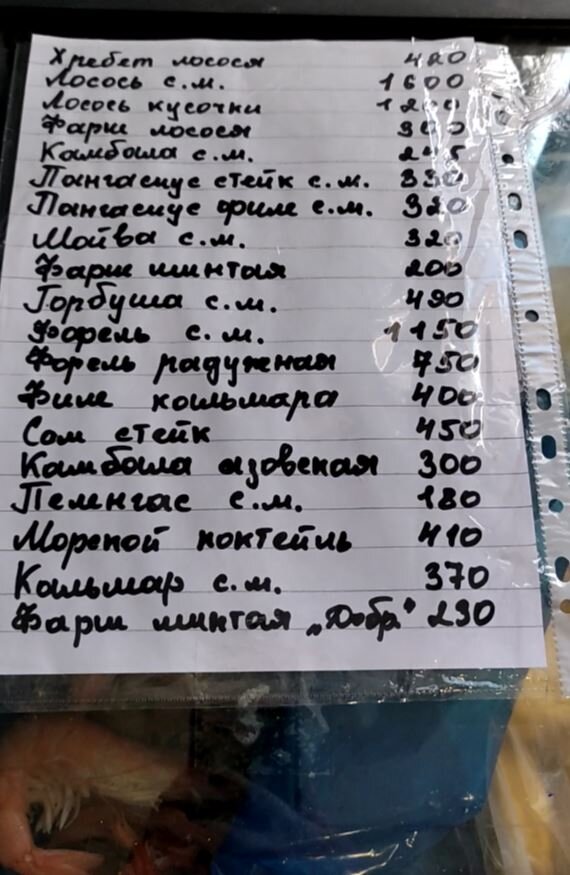 Хребет лосося 420
Лосось с.м. 1600
Лосось кусочки 1200
Фарш лосося 300
Камбала с.м. 245
Пангасиус стейк с.м. 330
Пангасиус филе с.м. 320
Мойва с.м. 320
Фарш минтая 200
Горбуша с.м. 490
Форель с.м. 1150
Форель радужная 750
Филе кальмара 400
Сом стейк 450
Камбала азовская 300
Пеленгас с.м. 180
Морской коктейль 410
Кальмар с.м. 370
Фарш минтая „Добр." 290